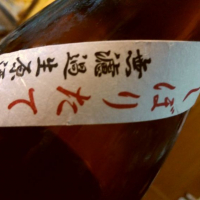 しぼりたて
無濾過生原酒